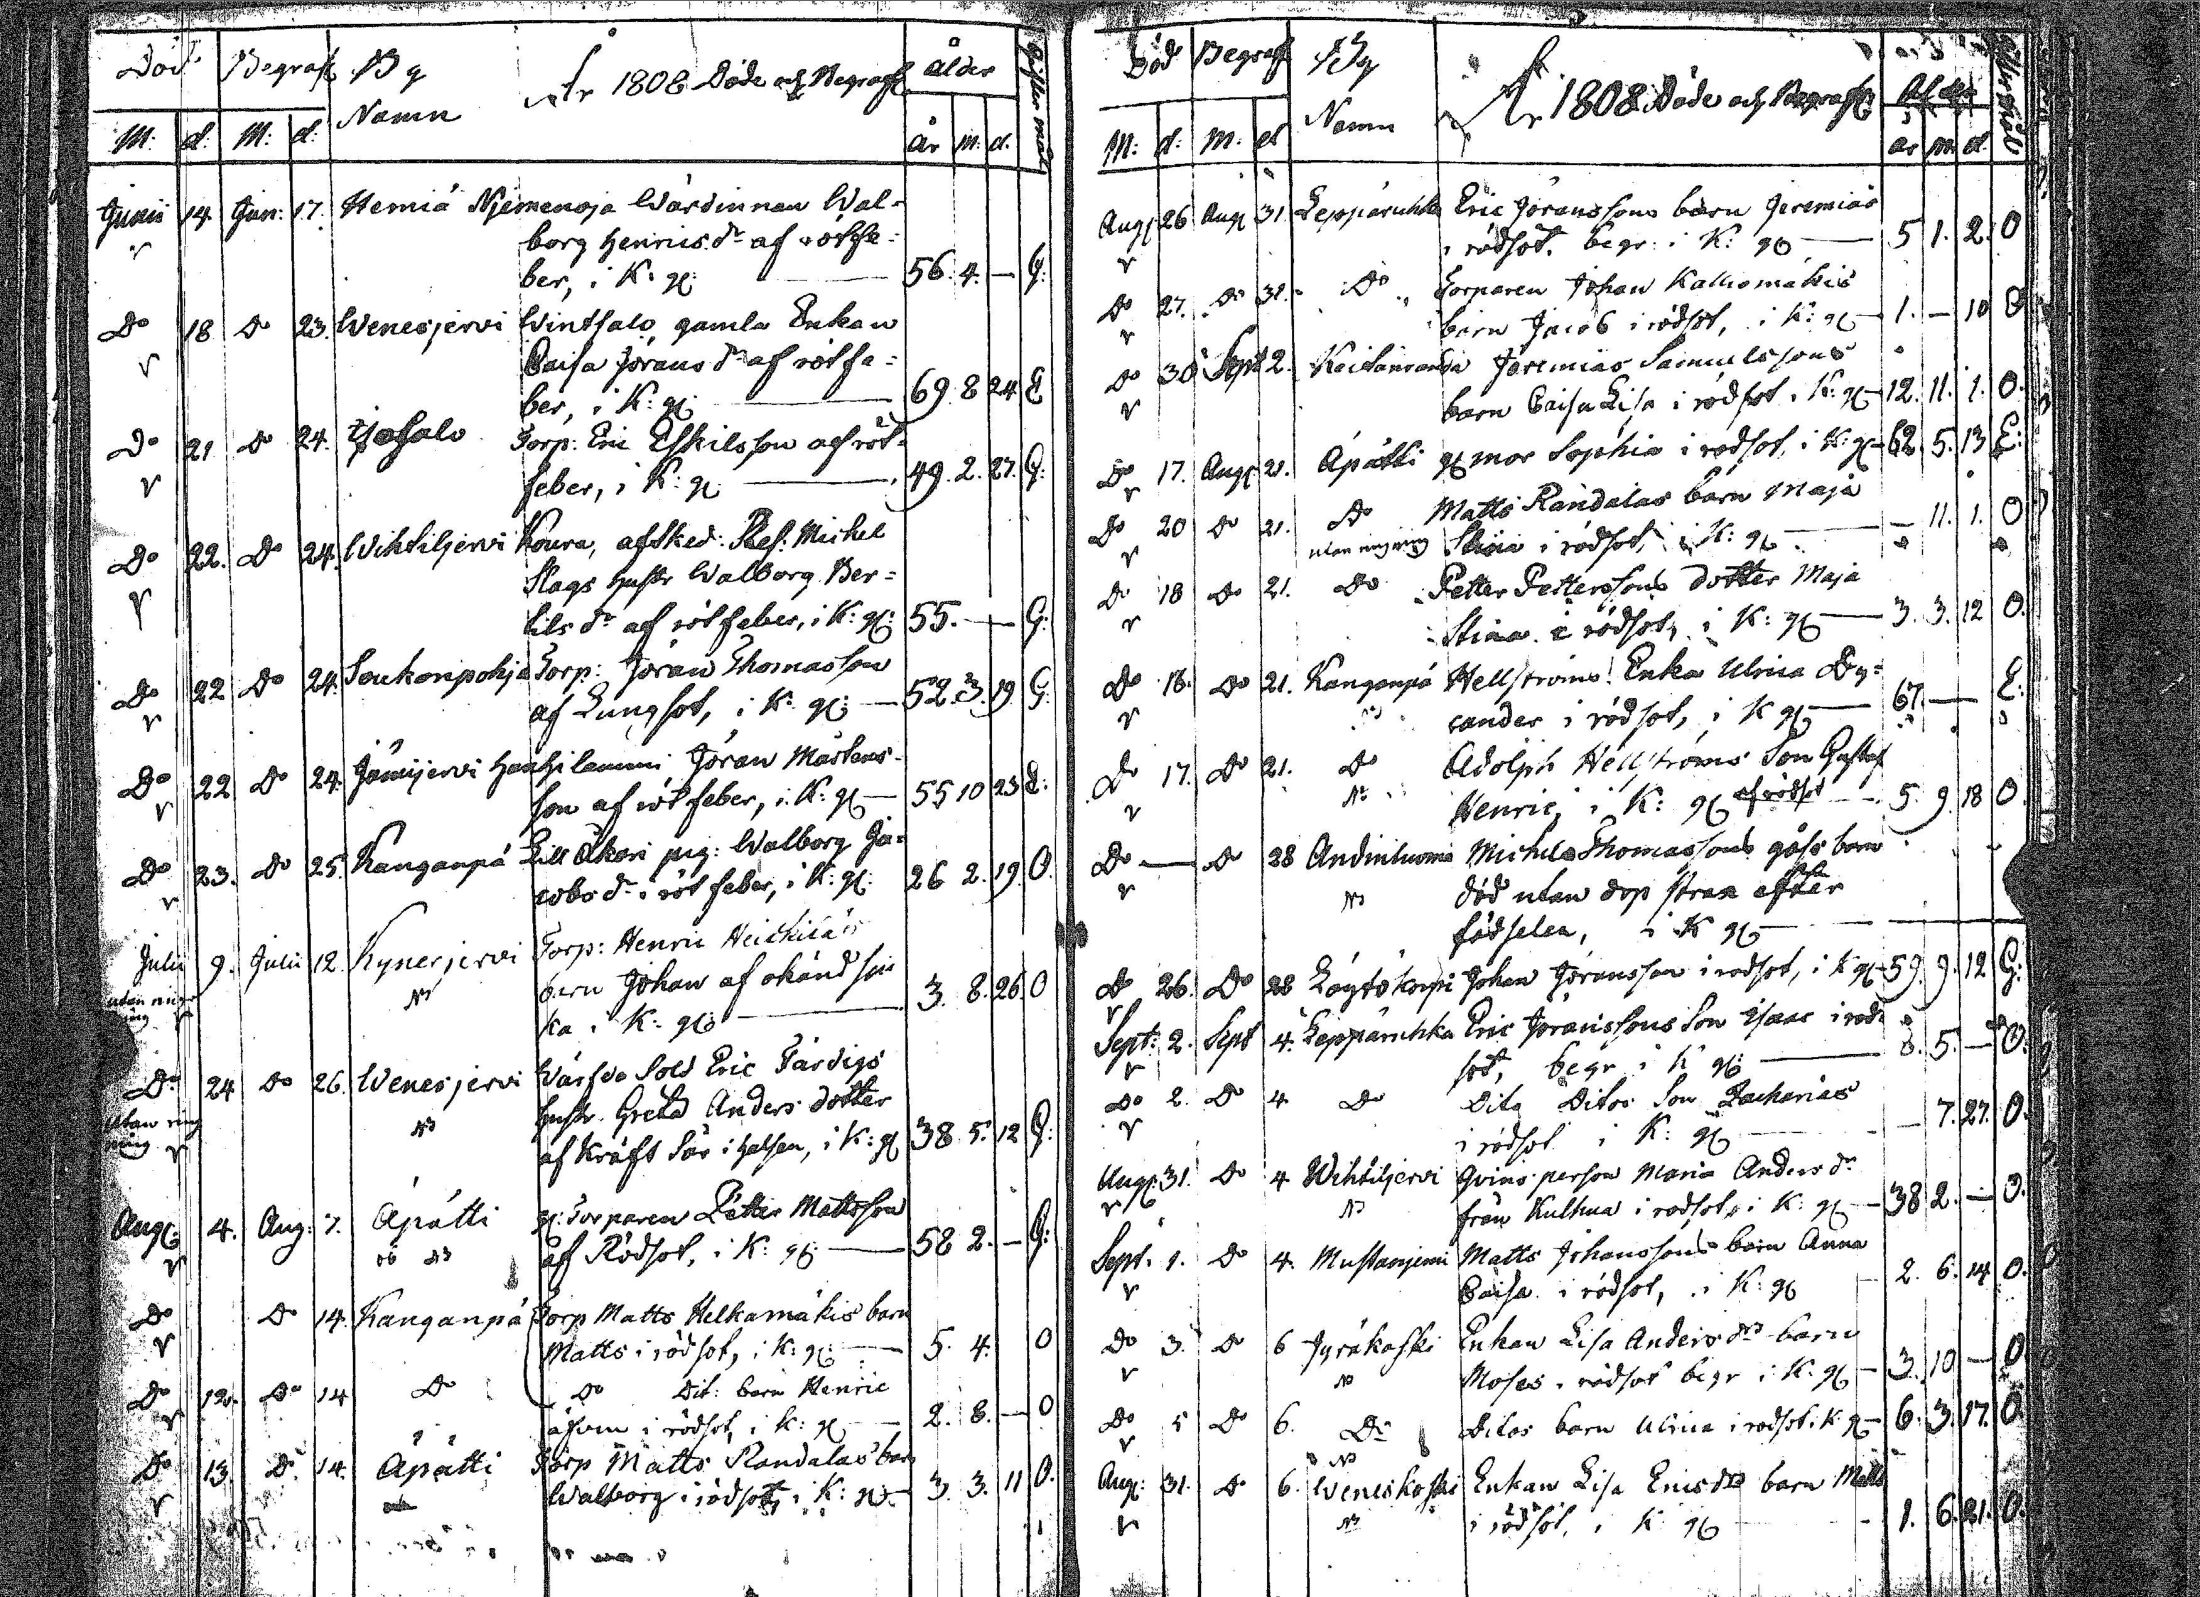 Död Begrafn By Namn År 1808 Döde och Begrafne ålder
M: d: M: d: år m: d.
Junii 14 Jun: 17. Hemiä Njemenoja Wärdinnan Wal-
borg Henrics dr af rötfe-
ber, i K: g: 56. 4. — G:
Do 18 Do 23. Wenesjervi Wintsalo gamla Enkan
Caisa Jörans dr af rötfe-
ber, i K: g: 69. 8 24. E
Do 21 Do 24. Torp: Eric Eskilsson af röt-
feber, i K: g: 49. 2. 27. G:
Do 22. Do 24. Wihtiljervi Koura, afsked: Ref: Michel
Slags hustr Walborg Ber-
tils dr af rötfeber, i K: g: 55. — — G:
Do 22 Do 24. Soukonpohja Torp: Jöran Thomasson
af Lungsot, i K: g: 52. 3. 19 G:
Do 22 Do 24. Jämijervi Jöran Mårtens-
son af rötfeber, i K: g 55 10 23 E:
Do 23. Do 25. Kanganpä Lill Äkäri pig: Walborg Ja-
cobs dr i rötfeber, i K: g: 26 2. 19. O.
Julii 9. Julii 12. Kynerjervi Torp: Henric Heickilä's
utan ring ning barn Johan af okänd sju
ka i K: g: 3. 8. 26. O
Do 24 Do 26. Wenesjervi Warfve Sold Eric Färdigs
utan ring ning hustr. Greta Anders dotter
af Kräft Sår i halsen, i K: g 38 5. 12 G:
Aug: 4. Aug: 7. Äpätti g: Torparen Petter Mattsson
af Rödsot, i K: g: 58 2. — G:
Do Do 14. Kanganpä Torp Matts Helkamäkis barn
Matts i rödsot, i K: g: 5. 4. O
Do 12. Do 14 Do Do Dit: barn Henric
äfven i rödsot, i K: g 2. 8. — O
Do 13. Do 14. Äpätti Torp Matts Randalas barn
Walborg i rödsot, i K: g: 3. 3. 11 O.
Död Begrafn By Namn År 1808 Döde och Begrafne Ålder
M: d: M: d år m d.
Aug: 26 Aug 31. Leppäruhka Eric Jöranssons barn Jeremias
i rödsot. begr: i K: g 5 1. 2. O
Do 27. Do 31. Do Torparen Johan Kalliomäkis
barn Jacob i rödsot, i K: g 1. — 10 O
Do 30 Sept 2. Jeremias Samuelssons
barn Caisa Lisa i rödsot. i K: g 12. 11. 1. O.
Do 17. Aug 21. Äpätti g mor Sophia i rödsot, i K: g 62. 5. 13 E:
Do 20 Do 21. Do Matts Randalas barn Maja
utan ringning Stina i rödsot, i K: g — 11. 1. O
Do 18 Do 21. Do Petter Petterssons dotter Maja
Stina i rödsot, i K: g 3. 3. 12 O.
Do 16. Do 21. Kanganpä Hellströms Enka Ulrica Dy-
cander i rödsot, i K g 67. — E:
Do 17. Do 21. Do Adolph Hellströms Son Gustaf
Henric, i K: g af rödsot 5. 9. 18 O.
Do — Do 28 Andinluoma Michels Thomassons gåss barn
död utan dop strax efter
födselen, i K g
Do 26. Do 28 Johan Jöransson i rodsot, i K g 59. 9. 12 G:
Sept: 2. Sept 4. Leppäruhka Eric Jöranssons Son Isaac i röd-
sot, begr. i K g 8. 5. — O.
Do 2. Do 4 Do Dito Ditos Son Zacharias
i rödsot i K: g — 7. 27. O.
Aug: 31. Do 4 Wihtiljervi Qvins person Maria Anders dr
från Kulhua i rodsot, i K: g 38 2. — O.
Sept. 1. Do 4. Mustanjemi Matts Johanssons barn Anna
Caisa i rödsot, i K: g 2. 6. 14 O.
Do 3. Do 6 Jyräkoski Enkan Lisa Anders drs barn
Moses i rödsot begr i K: g 3. 10 — O
Do 5 Do 6. Do Ditos barn Ulrica i rodsot. i K g 6. 3. 17. O
Aug: 31. Do 6. Weneskoski Enkan Lisa Erics drs barn Matts
i rödsot, i K g 1. 6. 21. O.